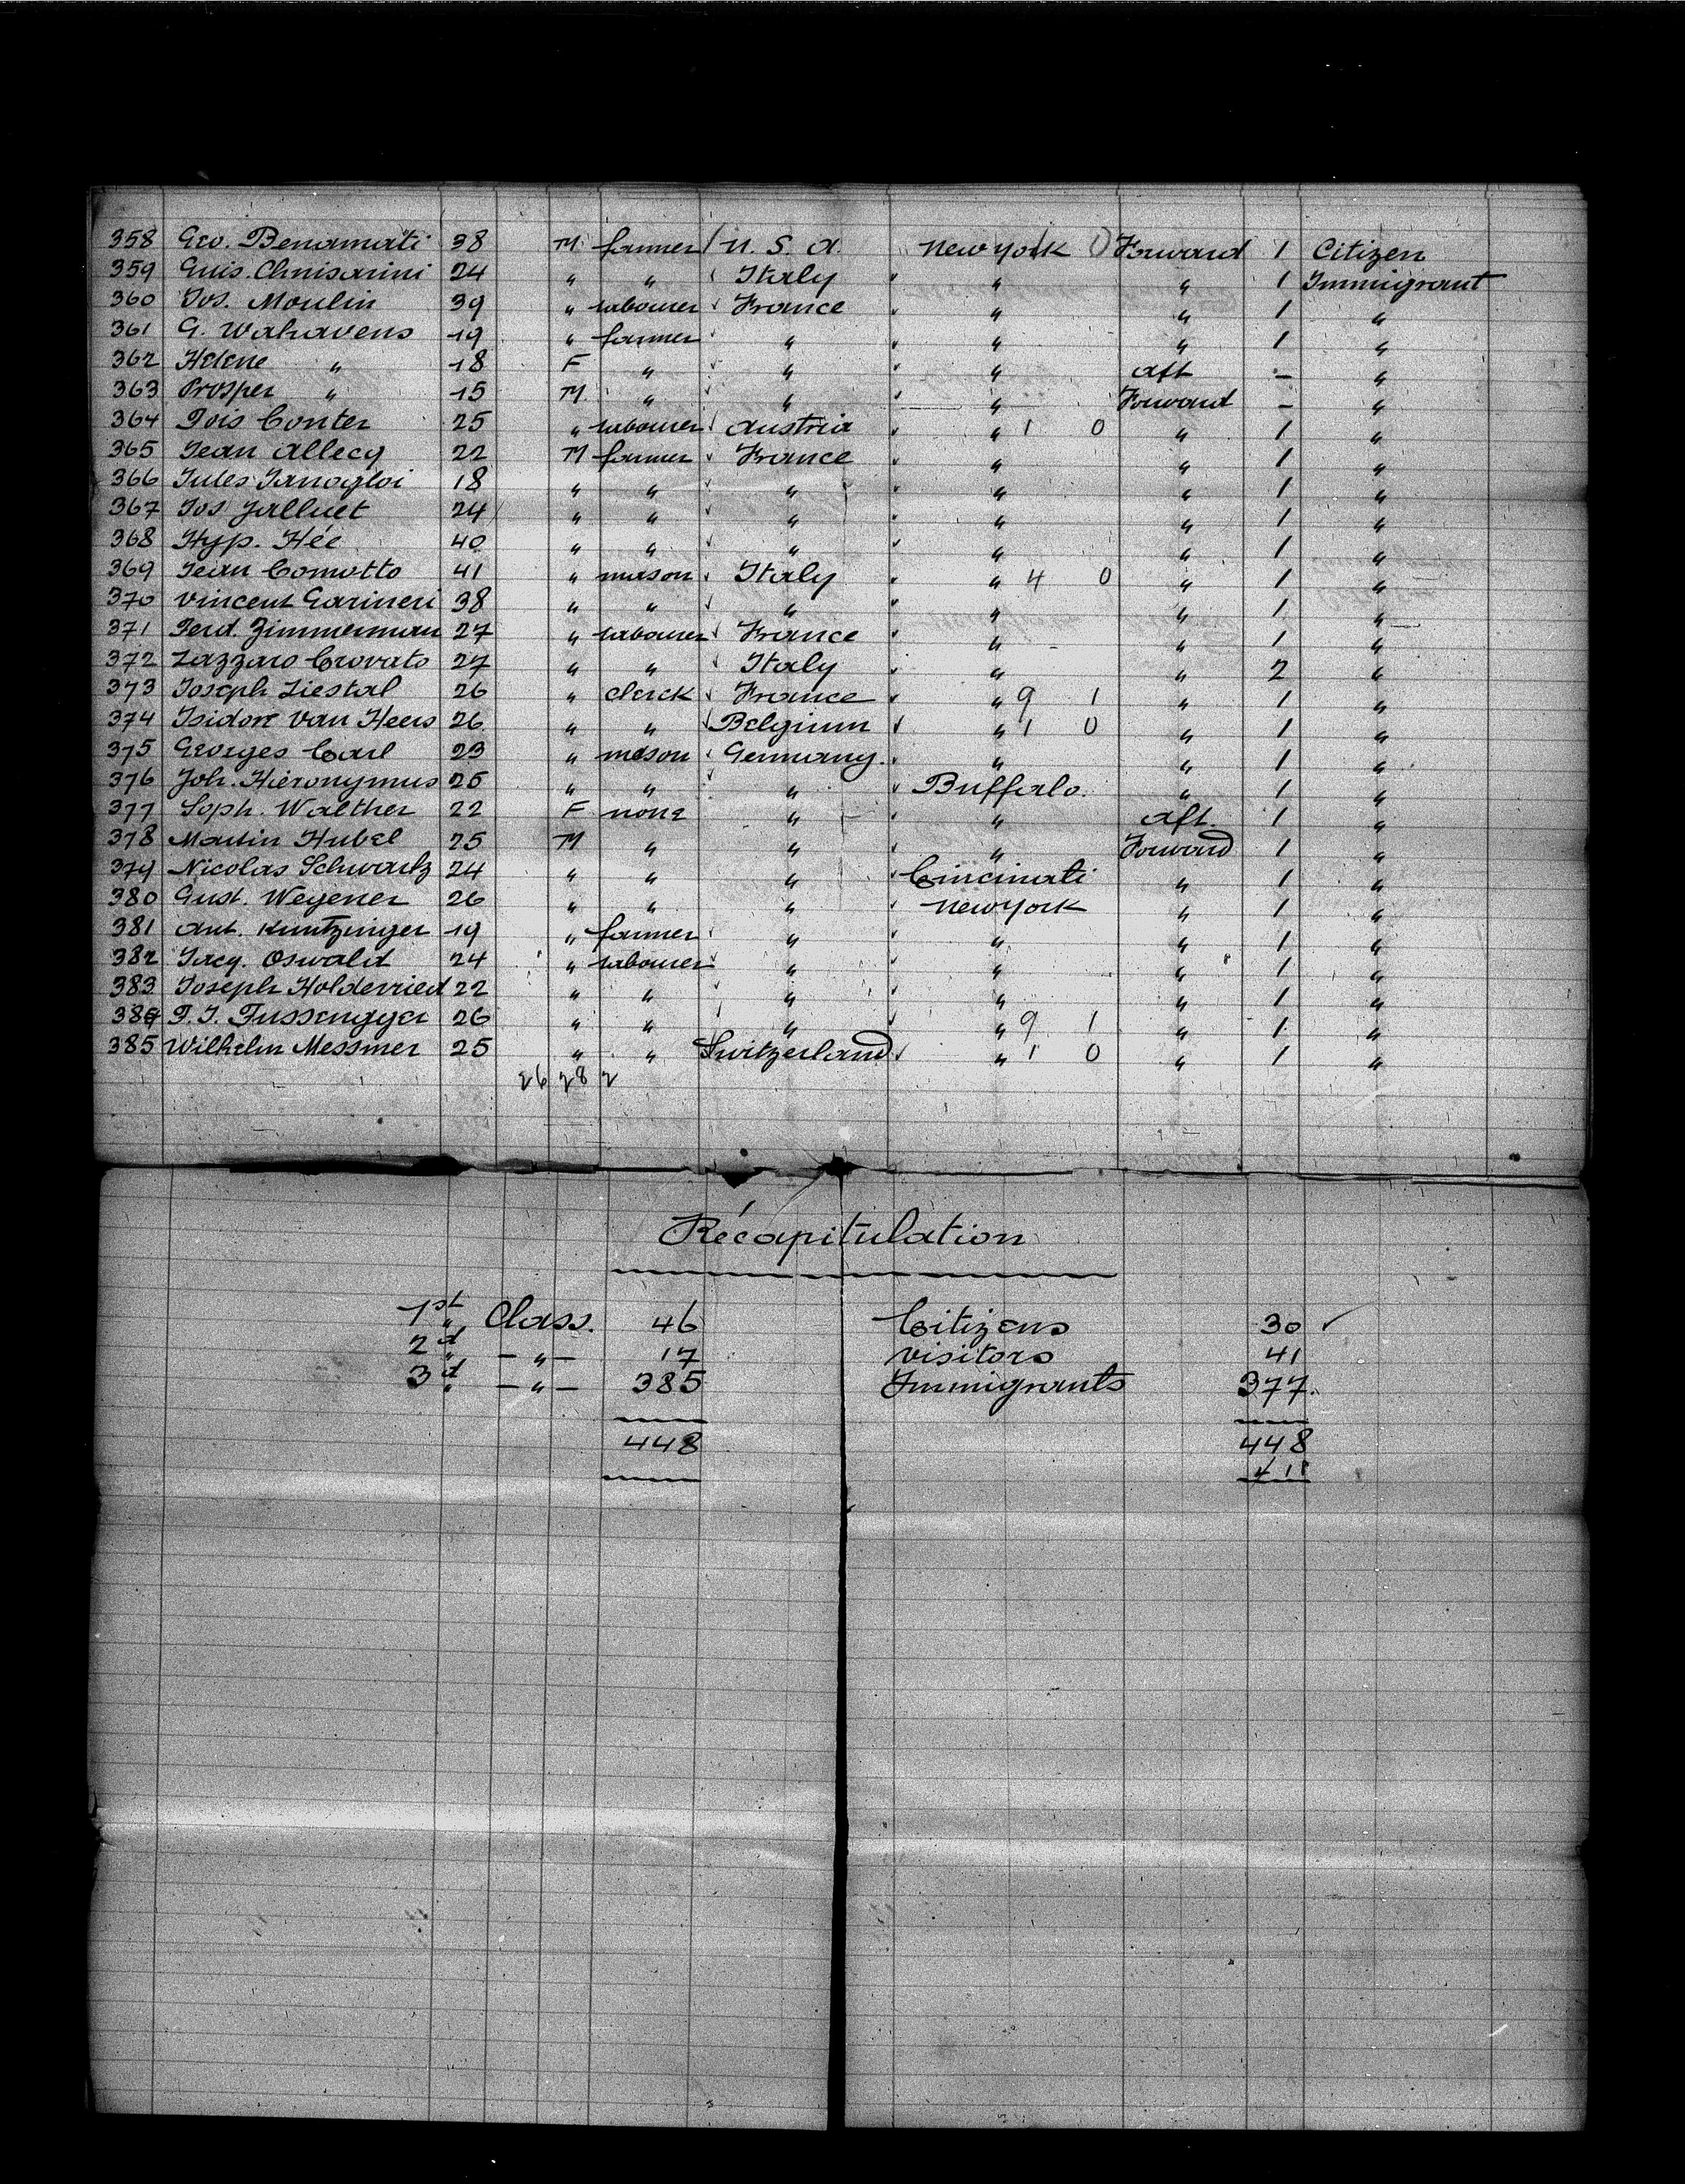 358 Geo. Benamati 38 M farmer / U. S. A. New York 0 Forward 1 Citizen
359 Guis. Chnisarini 24 " " Italy " " 1 Immigrant
360 Jos. Moulin 39 " labourer France " " 1 "
361 G. Wahavens 19 " farmer " " " 1 "
362 Helene " 18 F " " " aft - "
363 Prosper " 15 M " " " Forward - "
364 Pois Conter 25 " labourer Austria " 1 0 " 1 "
365 Jean Allecy 22 M farmer France " " 1 "
366 Jules Janogloi 18 " " " " " 1 "
367 Jos Jalluet 24 " " " " " 1 "
368 Hyp. Hée 40 " " " " " 1 "
369 Jean Comotto 41 " mason Italy " 4 0 " 1 "
370 Vincent Garineri 38 " " " " " 1 "
371 Ferd. Zimmerman 27 " labourer France " " 1 "
372 Lazzaro Crovato 27 " " Italy " " 2 "
373 Joseph Liestal 26 " clerck France " 9 1 " 1 "
374 Isidore Van Heers 26 " " Belgium " 1 0 " 1 "
375 Georges Carl 23 " mason Germany " " 1 "
376 Joh. Hieronymus 25 " " " Buffalo. " 1 "
377 Soph. Walther 22 F none " " aft. 1 "
378 Martin Hubel 25 M " " " Forward 1 "
379 Nicolas Schwartz 24 " " " Cincinati " 1 "
380 Gust. Wegener 26 " " " New York " 1 "
381 Ant. Kuntzinger 19 " farmer " " " 1 "
382 Jacq. Oswald 24 " labourer " " " 1 "
383 Joseph Holderried 22 " " " " " 1 "
384 F. J. Fussengger 26 " " " " 9 1 " 1 "
385 Wilhelm Messmer 25 " " Switzerland " 1 0 " 1 "
26 28 2
Récapitulation
1st Class. 46 Citizens 30 ✓
2d — " — 17 visitors 41
3d — " — 385 Immigrants 377.
448 448